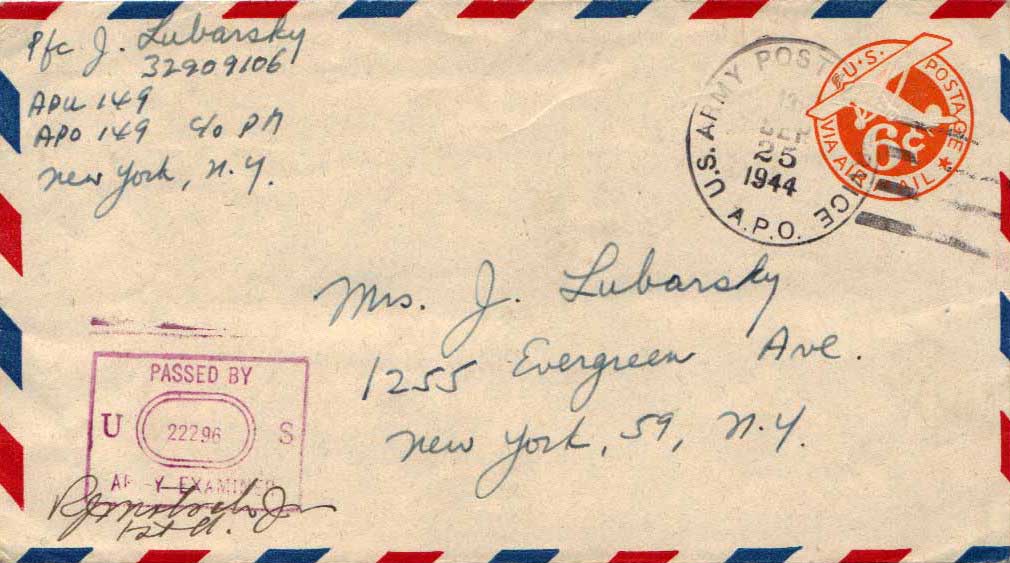 Pfc J. Lubarsky
32909106
APU 149
APO 149 c/o PM
New York, N.Y.
U.S. ARMY POSTAL SERVICE
SEP
25
1944
A.P.O.
U.S. POSTAGE
6¢
VIA AIR MAIL
Mrs. J. Lubarsky
1255 Evergreen Ave.
New York, 59, N.Y.
PASSED BY
U 22296 S
ARMY EXAMINER
1st Lt.